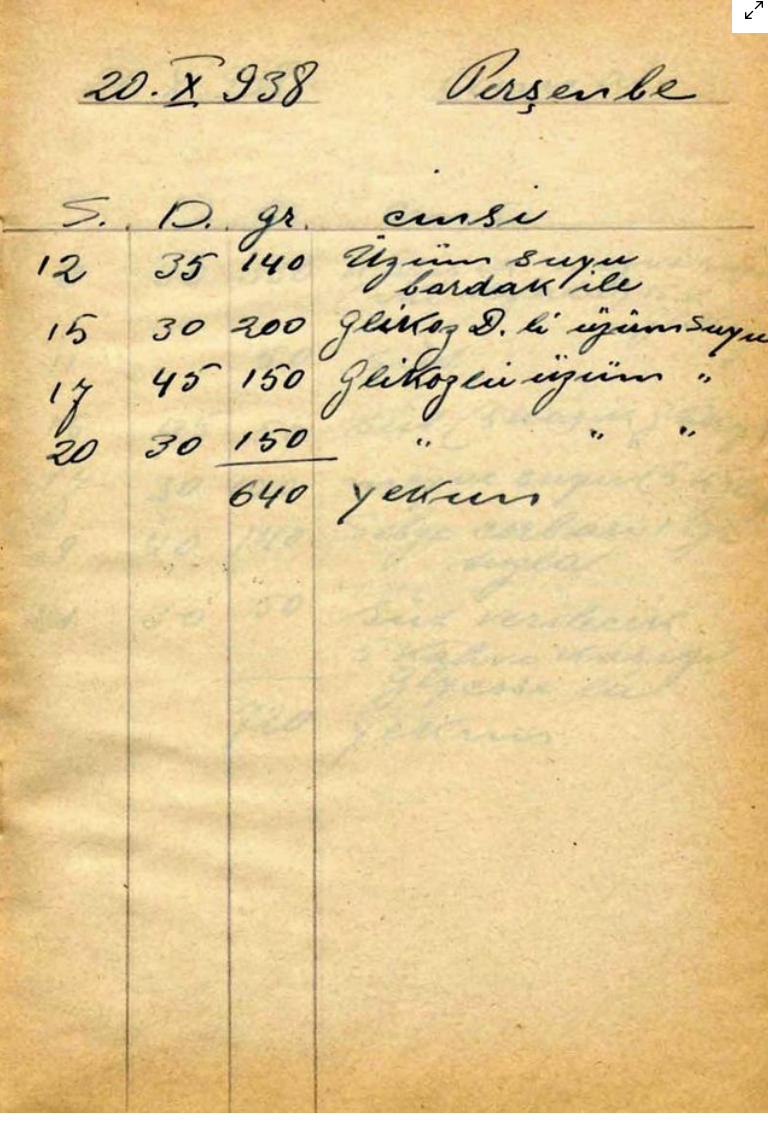 20. X 938 Perşenbe
S. D. gr. cinsi
12 35 140 Üzüm suyu
bardak ile
15 30 200 Glikoz D. lı üzüm suyu
17 45 150 Glikozlu üzüm "
20 30 150 " " "
640 yekun